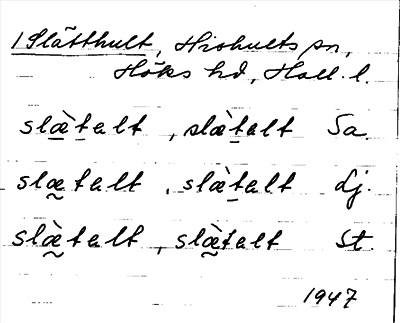 1 Slätthult, Hishults sn,
Höks hd, Hall. l.
slæ̀talt, slàtalt Sa.
slætalt, slàtalt Lj.
slàtalt, slàtalt St.
1947